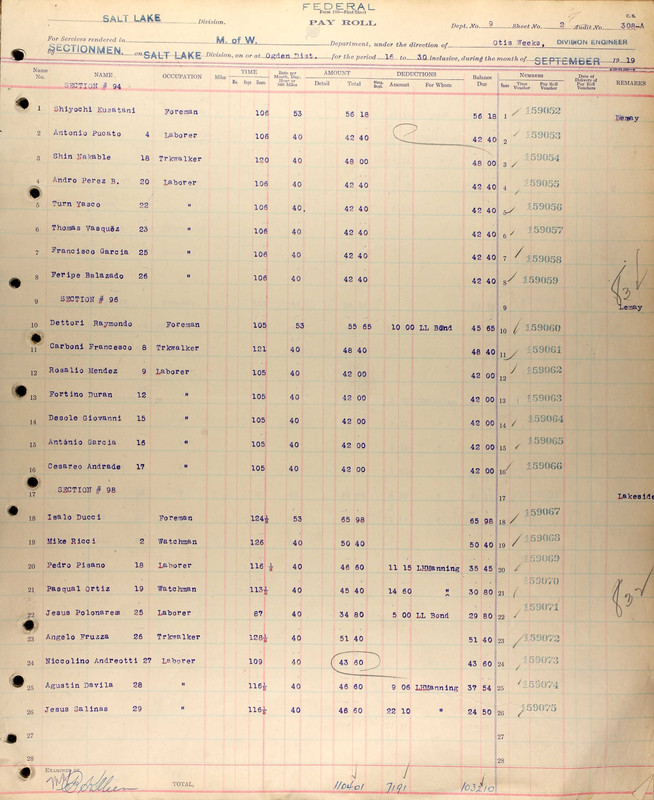 FEDERAL
Form 139—First Sheet
SALT LAKE Division. PAY ROLL Dept. No. 9 Sheet No. 2 Audit No. C.S. 308-A
For Services rendered in M. of W. Department, under the direction of Otis Weeks, DIVISION ENGINEER
SECTIONMEN. on SALT LAKE Division, on or at Ogden Dist. for the period 16 to 30 inclusive, during the month of SEPTEMBER 1919
Name No. NAME OCCUPATION Miles TIME AMOUNT Detail Total DEDUCTIONS Amount For Whom Balance Due NUMBERS REMARKS
SECTION # 94
1 Shiyochi Kusatani Foreman 106 53 56 18 56 18 1 159052 Lemay
2 Antonio Pucato 4 Laborer 106 40 42 40 42 40 2 159053
3 Shin Nakable 18 Trkwalker 120 40 48 00 48 00 3 159054
4 Andro Perez B. 20 Laborer 106 40 42 40 42 40 4 159055
5 Turn Yasco 22 " 106 40. 42 40 42 40 5 159056
6 Thomas Vasquez 23 " 106 40 42 40 42 40 6 159057
7 Francisco Garcia 25 " 106 40 42 40 42 40 7 159058
8 Feripe Balazado 26 " 106 40 42 40 42 40 8 159059
9 SECTION # 96 9 Lemay
10 Dettori Raymondo Foreman 105 53 55 65 10 00 LL Bond 45 65 10 159060
11 Carboni Francesco 8 Trkwalker 121 40 48 40 48 40 11 159061
12 Rosalio Mendez 9 Laborer 105 40 42 00 42 00 12 159062
13 Fortino Duran 12 " 105 40 42 00 42 00 13 159063
14 Desole Giovanni 15 " 105 40 42 00 42 00 14 159064
15 Antonio Garcia 16 " 105 40 42 00 42 00 15 159065
16 Cesareo Andrade 17 " 105 40 42 00 42 00 16 159066
17 SECTION # 98 17 Lakeside
18 Isalo Ducci Foreman 124½ 53 65 98 65 98 18 159067
19 Mike Ricci 2 Watchman 126 40 50 40 50 40 19 159068
20 Pedro Pisano 18 Laborer 116 ½ 40 46 60 11 15 LHManning 35 45 20 159069
21 Pasqual Ortiz 19 Watchman 113½ 40 45 40 14 60 " 30 80 21 159070
22 Jesus Polonarem 25 Laborer 87 40 34 80 5 00 LL Bond 29 80 22 159071
23 Angelo Fruzza 26 Trkwalker 128½ 40 51 40 51 40 23 159072
24 Niccolino Andreotti 27 Laborer 109 40 43 60 43 60 24 159073
25 Agustin Davila 28 " 116½ 40 46 60 9 06 LHManning 37 54 25 159074
26 Jesus Salinas 29 " 116½ 40 46 60 22 10 " 24 50 26 159075
27 27
28 28
EXAMINED BY TOTAL, 1104 01 71 91 1032 10